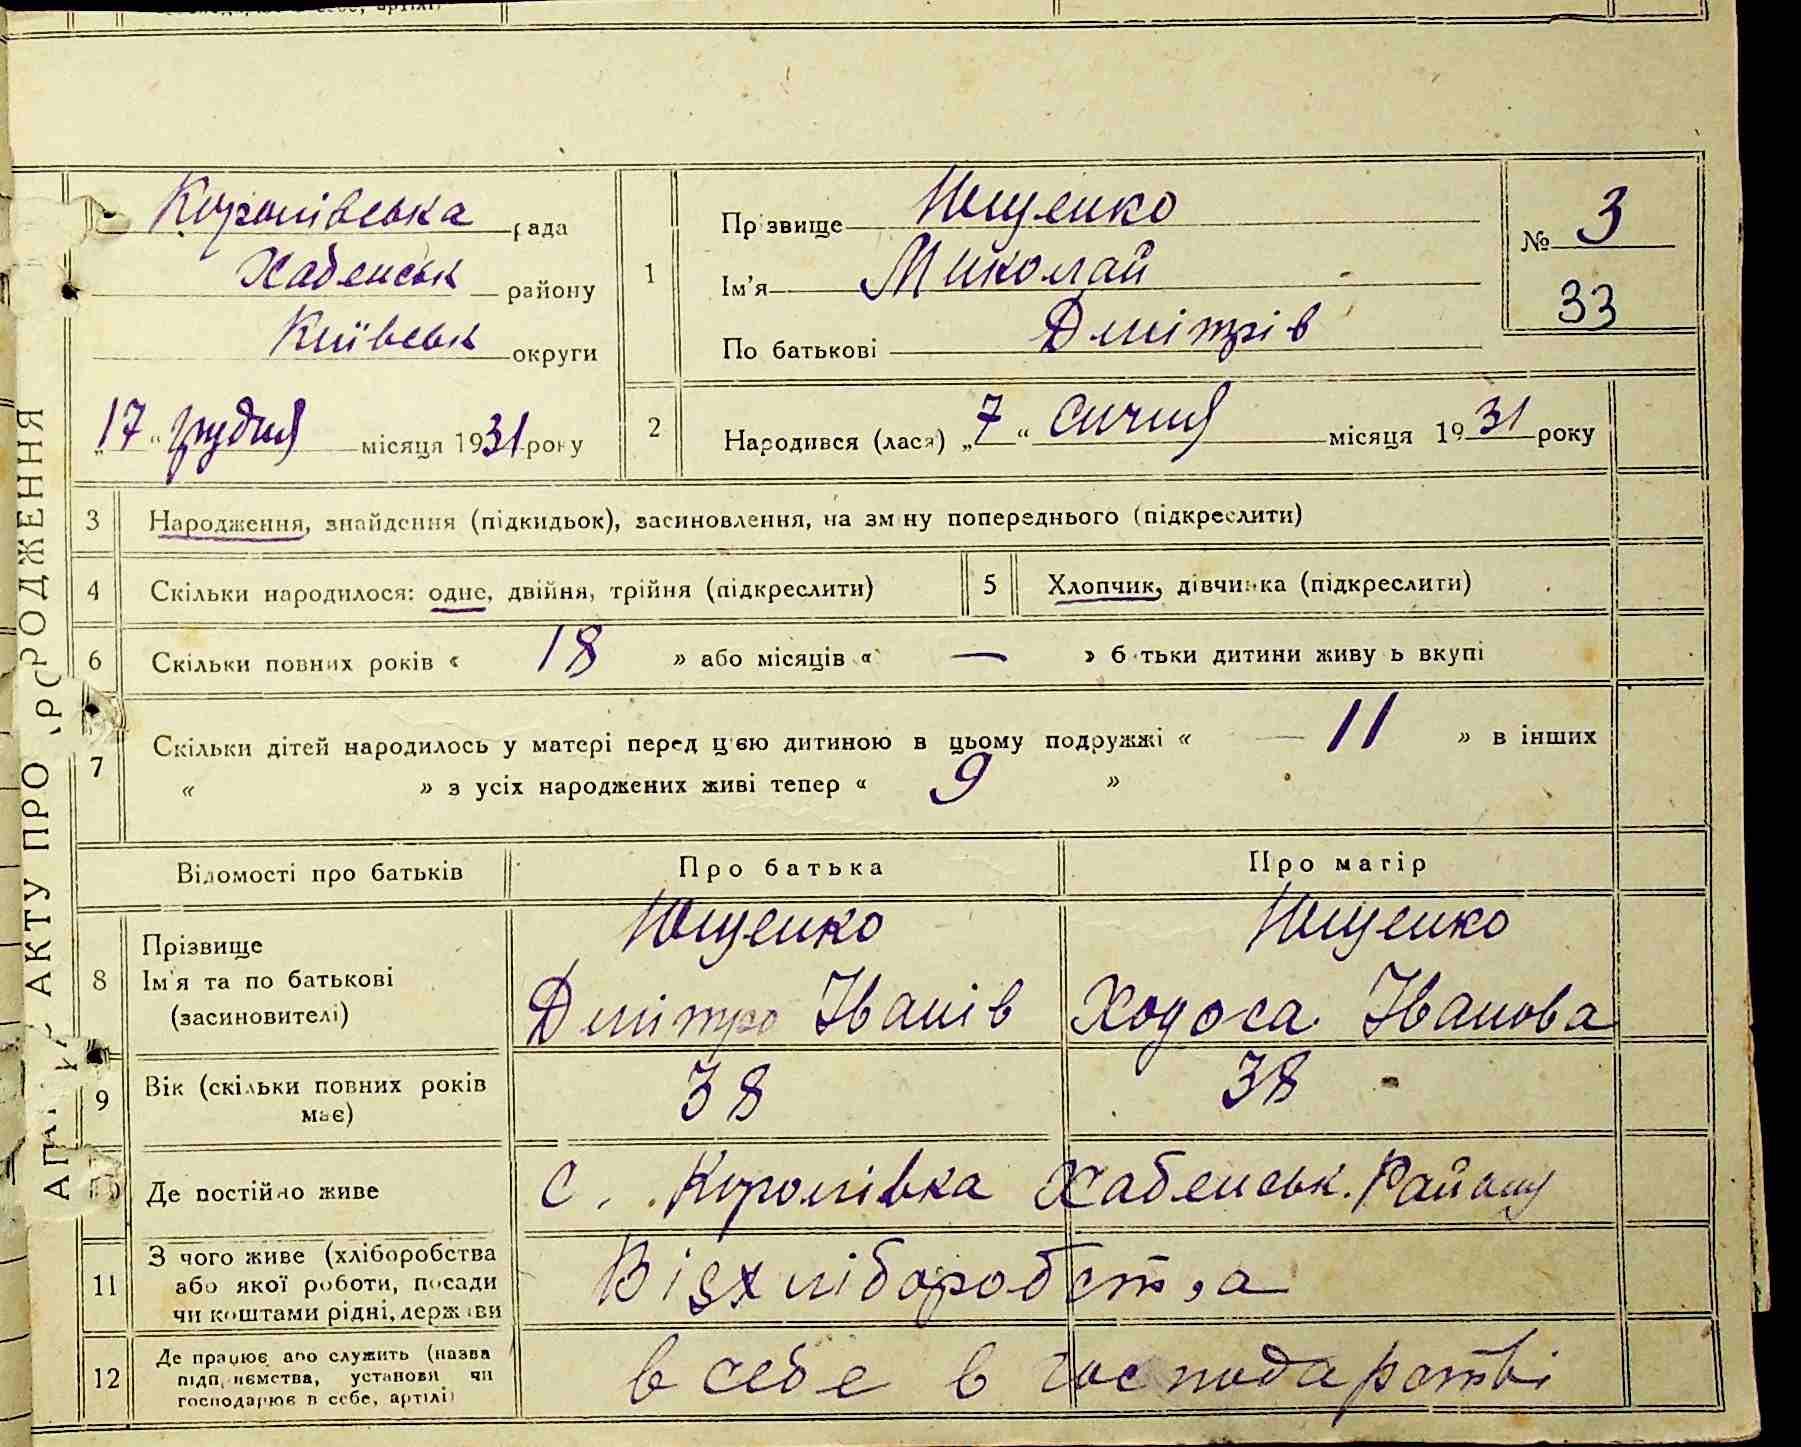 Королівська рада
Хабенськ району
Київськ округи
„17“ грудня місяця 1931 року
1
Прізвище Ющенко
Ім'я Миколай
По батькові Дмітрів
№ 3
33
2
Народився (лася) „7“ січня місяця 1931 року
АКТУ ПРО НАРОДЖЕННЯ
3 Народження, знайдення (підкидьок), засиновлення, на зміну попереднього (підкреслити)
4 Скільки народилося: одне, двійня, трійня (підкреслити) 5 Хлопчик, дівчинка (підкреслити)
6 Скільки повних років « 18 » або місяців « — » батьки дитини живуть вкупі
7 Скільки дітей народилось у матері перед цією дитиною в цьому подружжі « 11 » в інших
« » з усіх народжених живі тепер « 9 »
Відомості про батьків Про батька Про матір
8 Прізвище
Ім'я та по батькові
(засиновителі)
Ющенко
Дмітро Іванів
Ющенко
Ходоса Іванова
9 Вік (скільки повних років
має)
38 38
10 Де постійно живе с. Королівка Хабенськ. Району
11 З чого живе (хліборобства
або якої роботи, посади
чи коштами рідні, держави
Від хліборобства
12 Де працює або служить (назва
підприємства, установи чи
господарює в себе, артілі)
в себе в господарстві